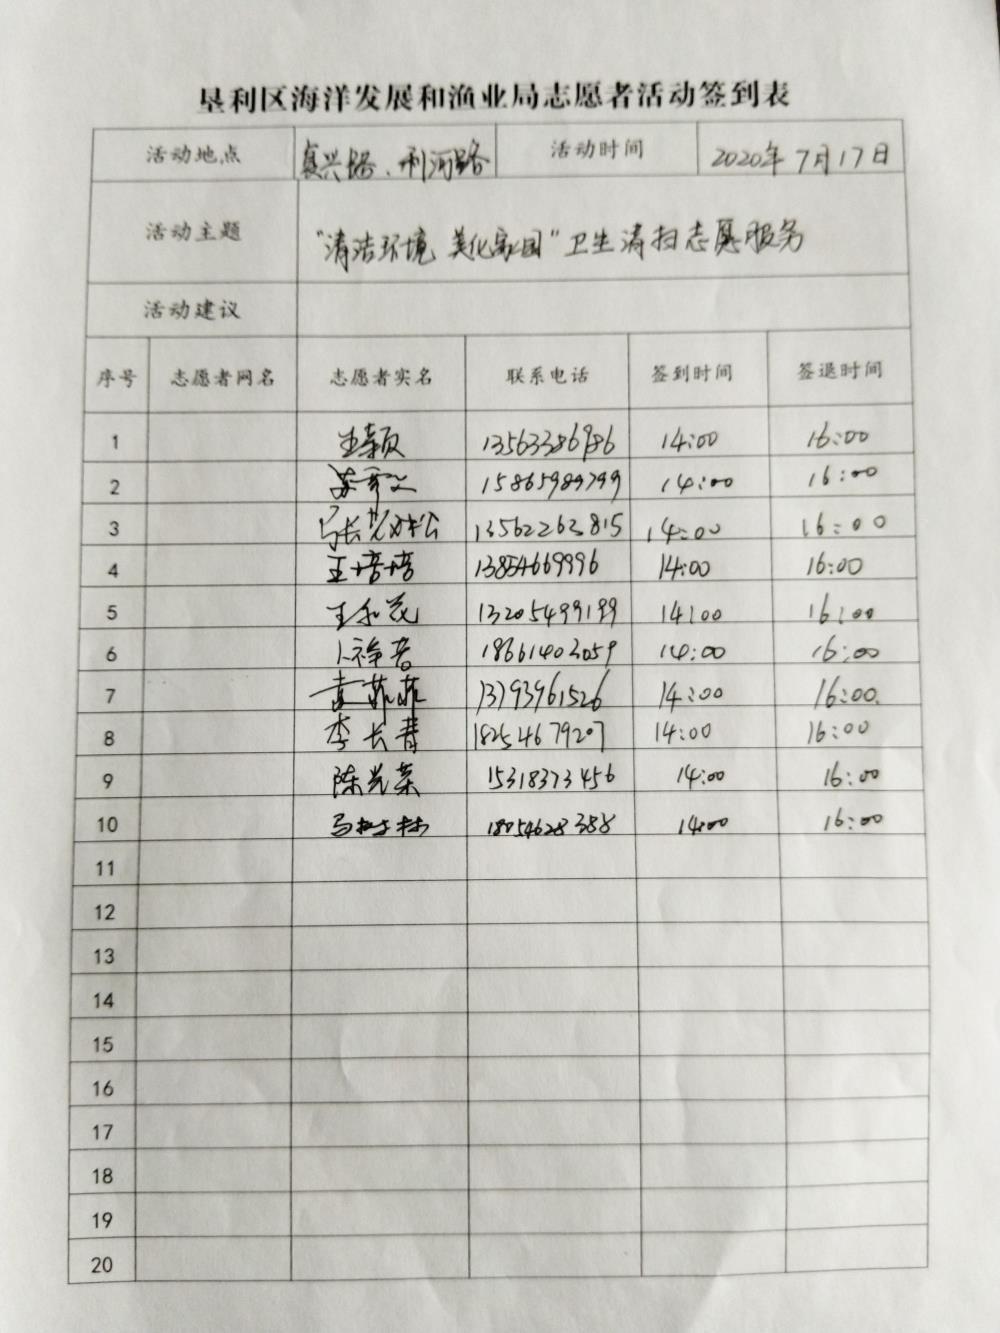 垦利区海洋发展和渔业局志愿者活动签到表
活动地点 复兴路、利河路 活动时间 2020年7月17日
活动主题 "清洁环境 美化家园"卫生清扫志愿服务
活动建议
序号 志愿者网名 志愿者实名 联系电话 签到时间 签退时间
1 13563386986 14:00 16:00
2 15865989799 14:00 16:00
3 13562263815 14:00 16:00
4 王培培 13854669996 14:00 16:00
5 13205499199 14:00 16:00
6 18661403059 14:00 16:00
7 袁菲菲 13793961526 14:00 16:00
8 李长青 18254679207 14:00 16:00
9 陈光荣 15318373456 14:00 16:00
10 马树林 18054628388 14:00 16:00
11
12
13
14
15
16
17
18
19
20